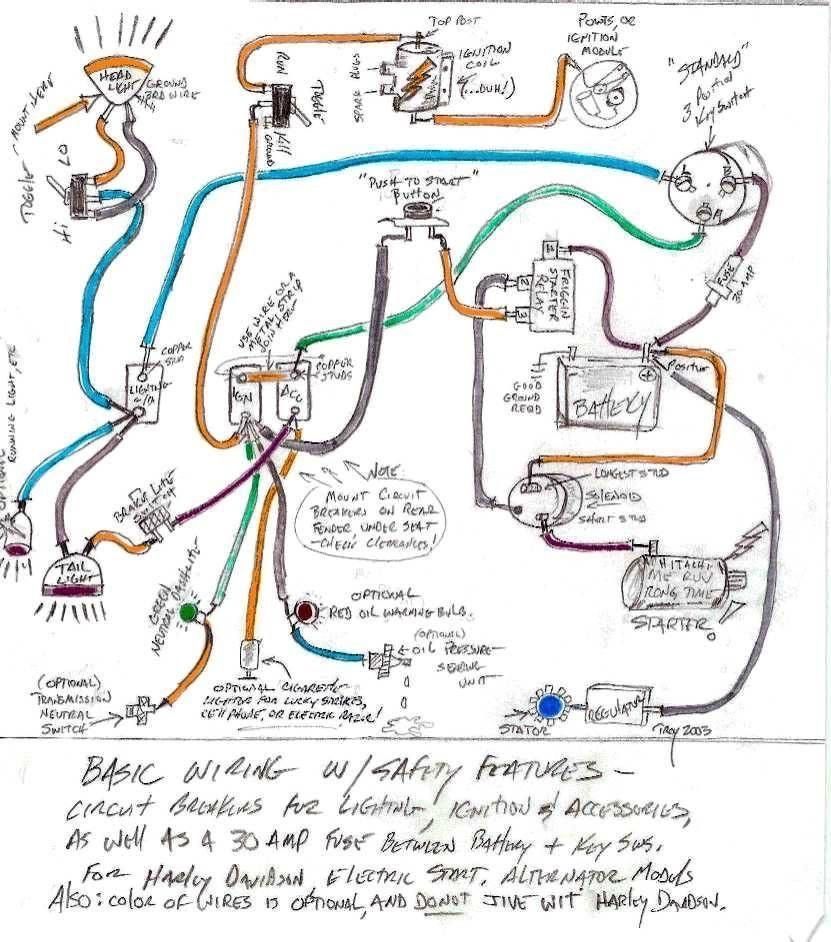 TOP POST
POINTS, OR
IGNITION
MODULE
IGNITION
COIL
(...DUH!)
SPARK PLUGS
RUN
TOGGLE
KILL
GROUND
"STANDARD"
3 POSITION
KEY SWITCH
HEAD
LIGHT
GROUND
3RD WIRE
MOUNT HERE
TOGGLE
LO
Hi
"PUSH TO START"
BUTTON
FUSE
30 AMP
FRIGGIN
STARTER
RELAY
USE WIRE OR A
METAL STRIP
JOIN HERE
COPPER
STUD
COPPER
STUDS
LIGHTING
IGN
ACC
GOOD
GROUND
REQD
BATTERY
POSITIVE
+
RUNNING LIGHT, ETC
OPTIONAL
BRAKE LITE
SWITCH
TAIL
LIGHT
NOTE
MOUNT CIRCUIT
BREAKERS ON REAR
FENDER UNDER SEAT
-CHECK CLEARANCES!
LONGEST STUD
SOLENOID
SHORT STUD
HITACHI
ME RUV
RONG TIME
STARTER
GREEN
NEUTRAL DASH LITE
OPTIONAL
RED OIL WARNING BULB.
(OPTIONAL)
OIL PRESSURE
SENDING
UNIT
(OPTIONAL)
TRANSMISSION
NEUTRAL
SWITCH
OPTIONAL CIGARETTE
LIGHTER FOR LUCKY STRIKES,
CELL PHONE, OR ELECTRIC RAZOR!
STATOR
REGULATOR
TROY 2003
BASIC WIRING W/SAFETY FEATURES -
CIRCUIT BREAKERS FOR LIGHTING, IGNITION & ACCESSORIES,
AS WELL AS A 30 AMP FUSE BETWEEN BATTERY + KEY SWS.
FOR HARLEY DAVIDSON ELECTRIC START. ALTERNATOR MODELS
ALSO: COLOR OF WIRES IS OPTIONAL, AND DO NOT JIVE WIT HARLEY DAVIDSON.